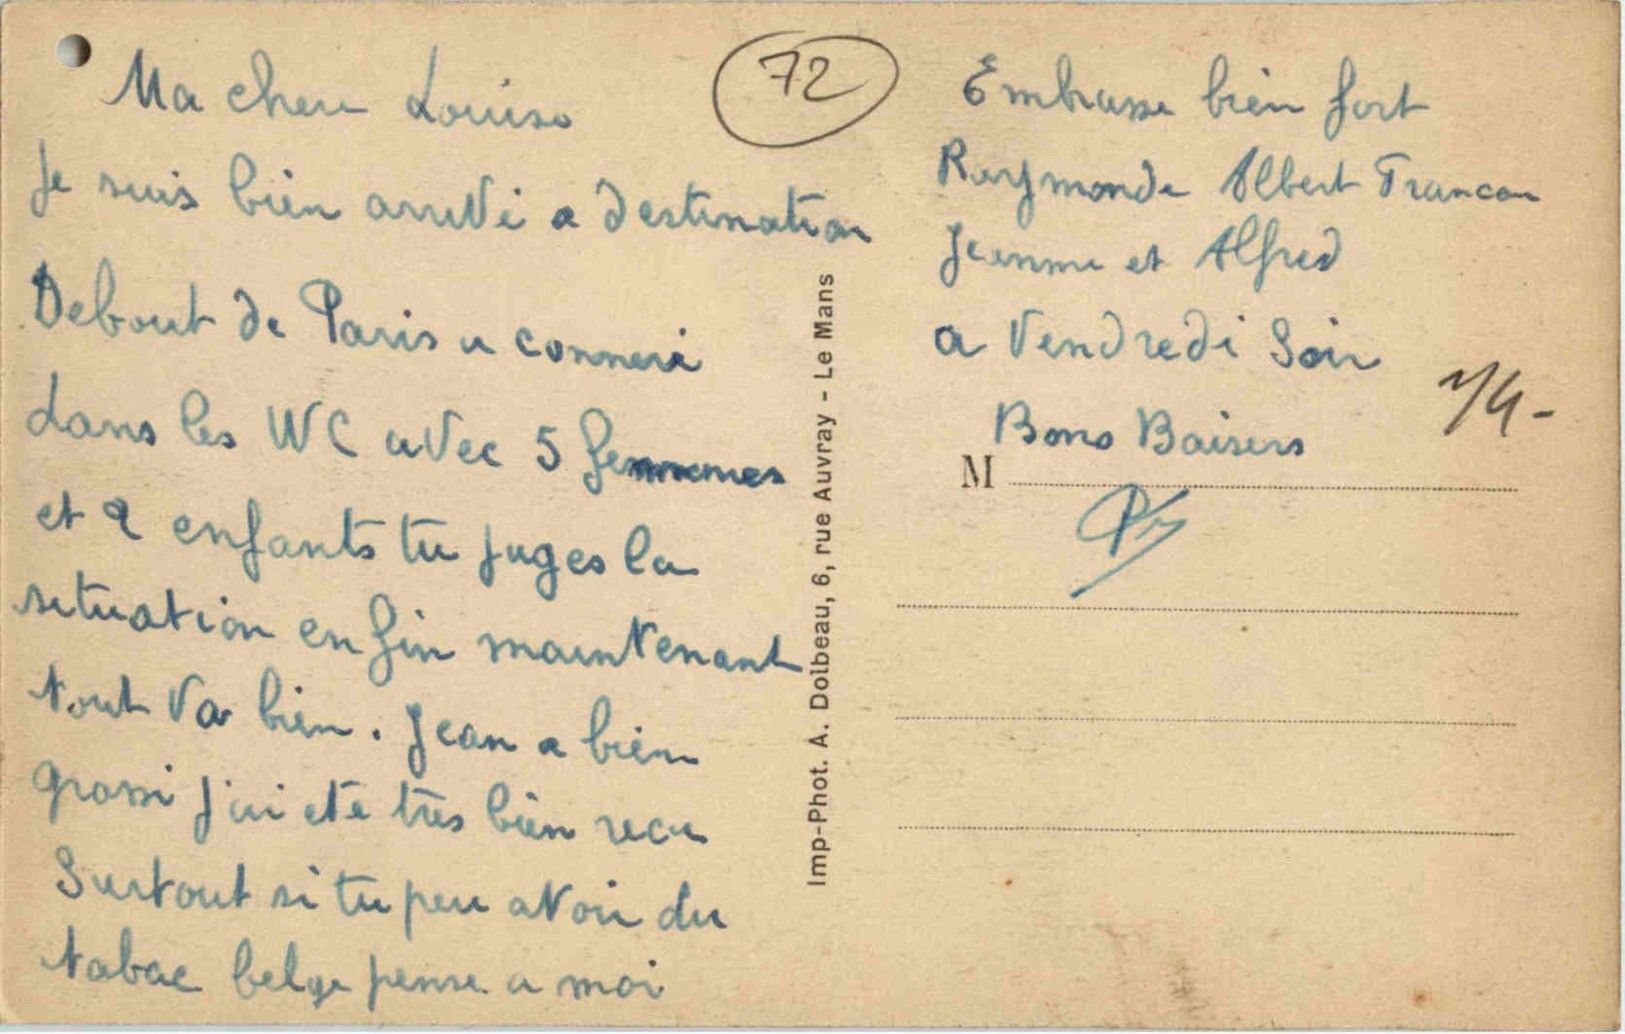 Ma cher Louise
Je suis bien arrivé a destination
Debout de Paris a connerè
dans les WC avec 5 femmes
et 2 enfants tu juges la
situation enfin maintenant
tout va bien. Jean a bien
grossi j'ai eté très bien recu
Surtout si tu peu avoir du
tabac belge pense a moi
72
Embrasse bien fort
Raymonde Albert
Jeanne et Alfred
a Vendredi Soir
Bons Baisers
M
Imp-Phot. A. Dolbeau, 6, rue Auvray - Le Mans